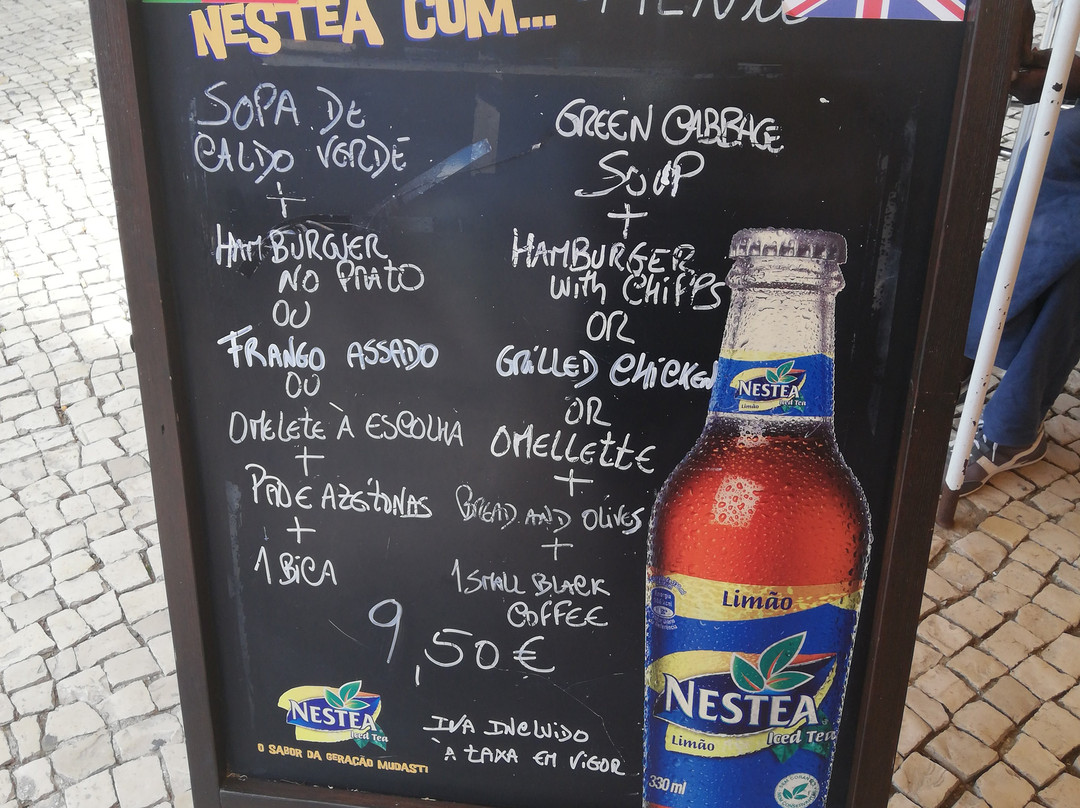 NESTEA COM...
MENU
SOPA DE
CALDO VERDE
+
HAMBURGUER
NO PRATO
OU
FRANGO ASSADO
OU
OMELETE À ESCOLHA
+
PÃO E AZEITONAS
+
1 BICA
GREEN CABBAGE
SOUP
+
HAMBURGER
with CHIPPS
OR
GRILLED CHICKEN
OR
OMELLETTE
+
BREAD AND OLIVES
+
1 SMALL BLACK
COFFEE
9,50 €
IVA INCLUIDO
À TAXA EM VIGOR
NESTEA
Iced Tea
O SABOR DA GERAÇÃO MUDASTI
NESTEA
Limão Iced Tea
Limão
NESTEA
Iced Tea
Limão
330 ml